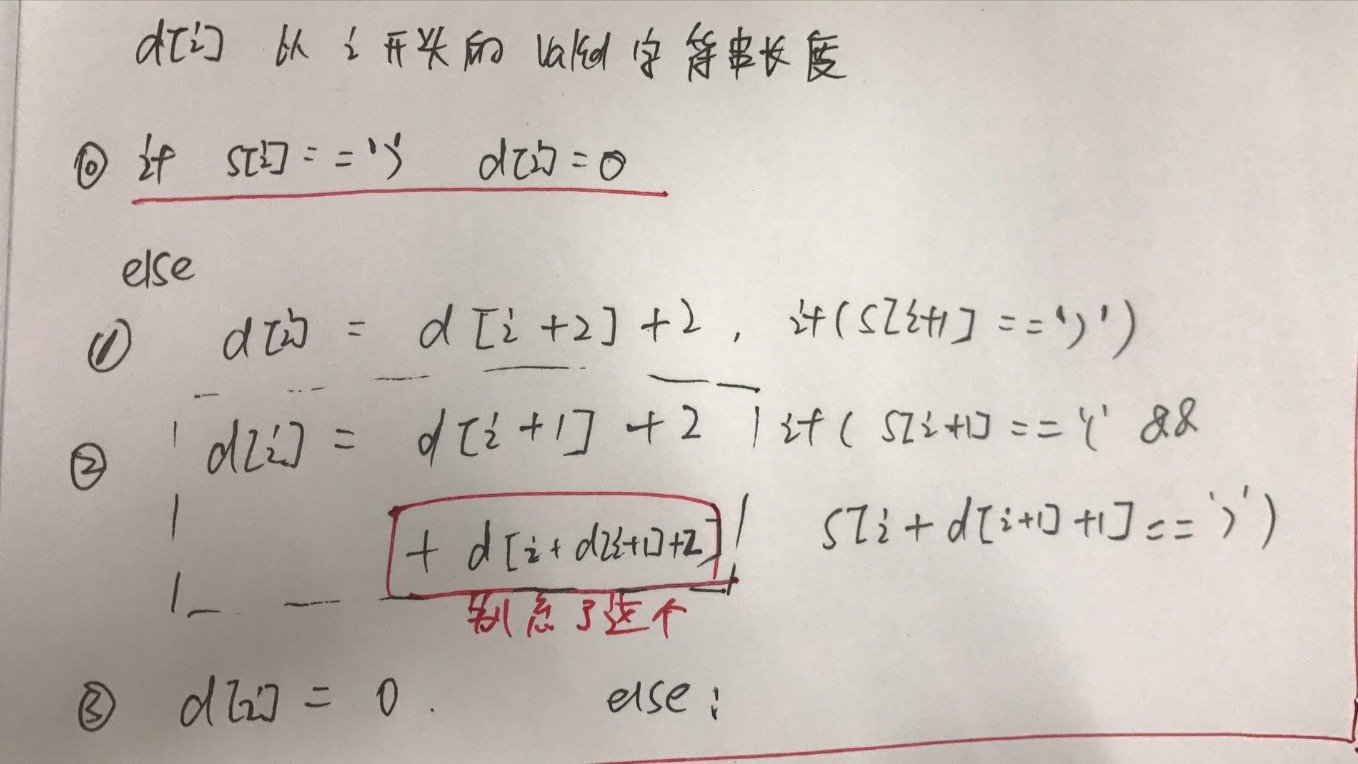 d[i] 从 i 开头的 valid 字符串长度
⓪ if s[i]==')' d[i]=0
else
① d[i] = d[i+2]+2, if(s[i+1]==')')
② d[i] = d[i+1]+2 if(s[i+1]=='(' &&
+ d[i+d[i+1]+2] s[i+d[i+1]+1]==')')
别忘了这个
③ d[i] = 0. else;